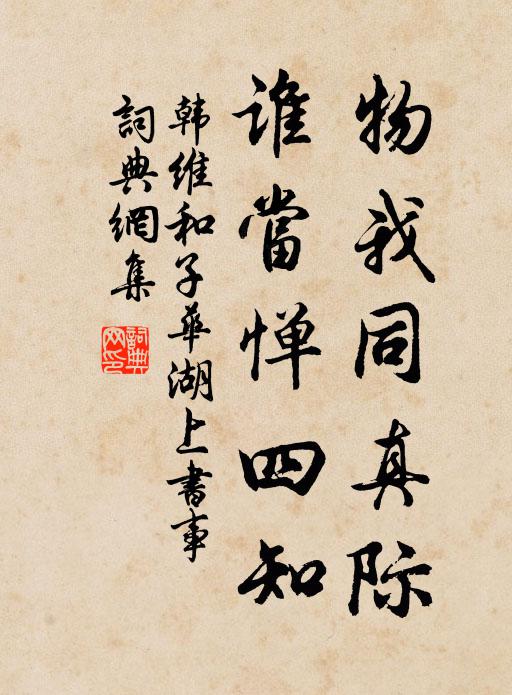 物我同真际
谁當惮四知
韩维和子华湖上書事
詞典網集
詞典网印